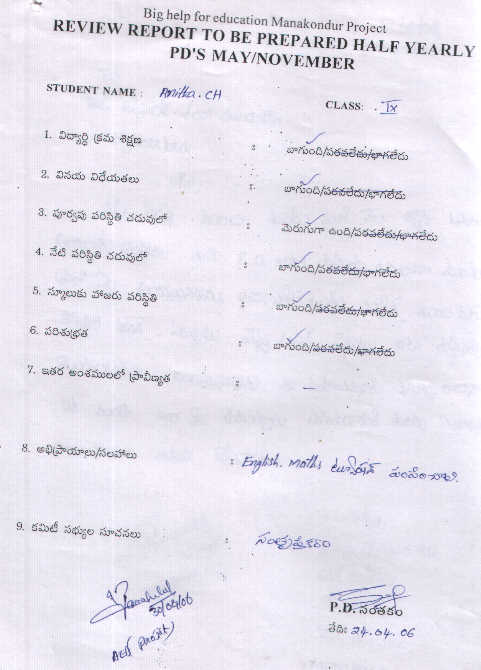 Big help for education Manakondur Project
REVIEW REPORT TO BE PREPARED HALF YEARLY
PD'S MAY/NOVEMBER
STUDENT NAME : Anitha. CH
CLASS: . IX
1. విద్యార్థి క్రమ శిక్షణ : బాగుంది/పరవలేదు/భాగలేదు
2. వినయ విధేయతలు : బాగుంది/పరవలేదు/భాగలేదు
3. పూర్వపు పరిస్థితి చదువులో : మెరుగుగా ఉంది/పరవలేదు/భాగలేదు
4. నేటి పరిస్థితి చదువులో : బాగుంది/పరవలేదు/భాగలేదు
5. స్కూలుకు హాజరు పరిస్థితి : బాగుంది/పరవలేదు/భాగలేదు
6. పరిశుభ్రత : బాగుంది/పరవలేదు/భాగలేదు
7. ఇతర అంశములలో ప్రావీణ్యత : –
8. అభిప్రాయాలు/సలహాలు : English. Maths ట్యూషన్
9. కమిటీ సభ్యుల సూచనలు :
P.D. సంతకం
తేది: 24.04.06